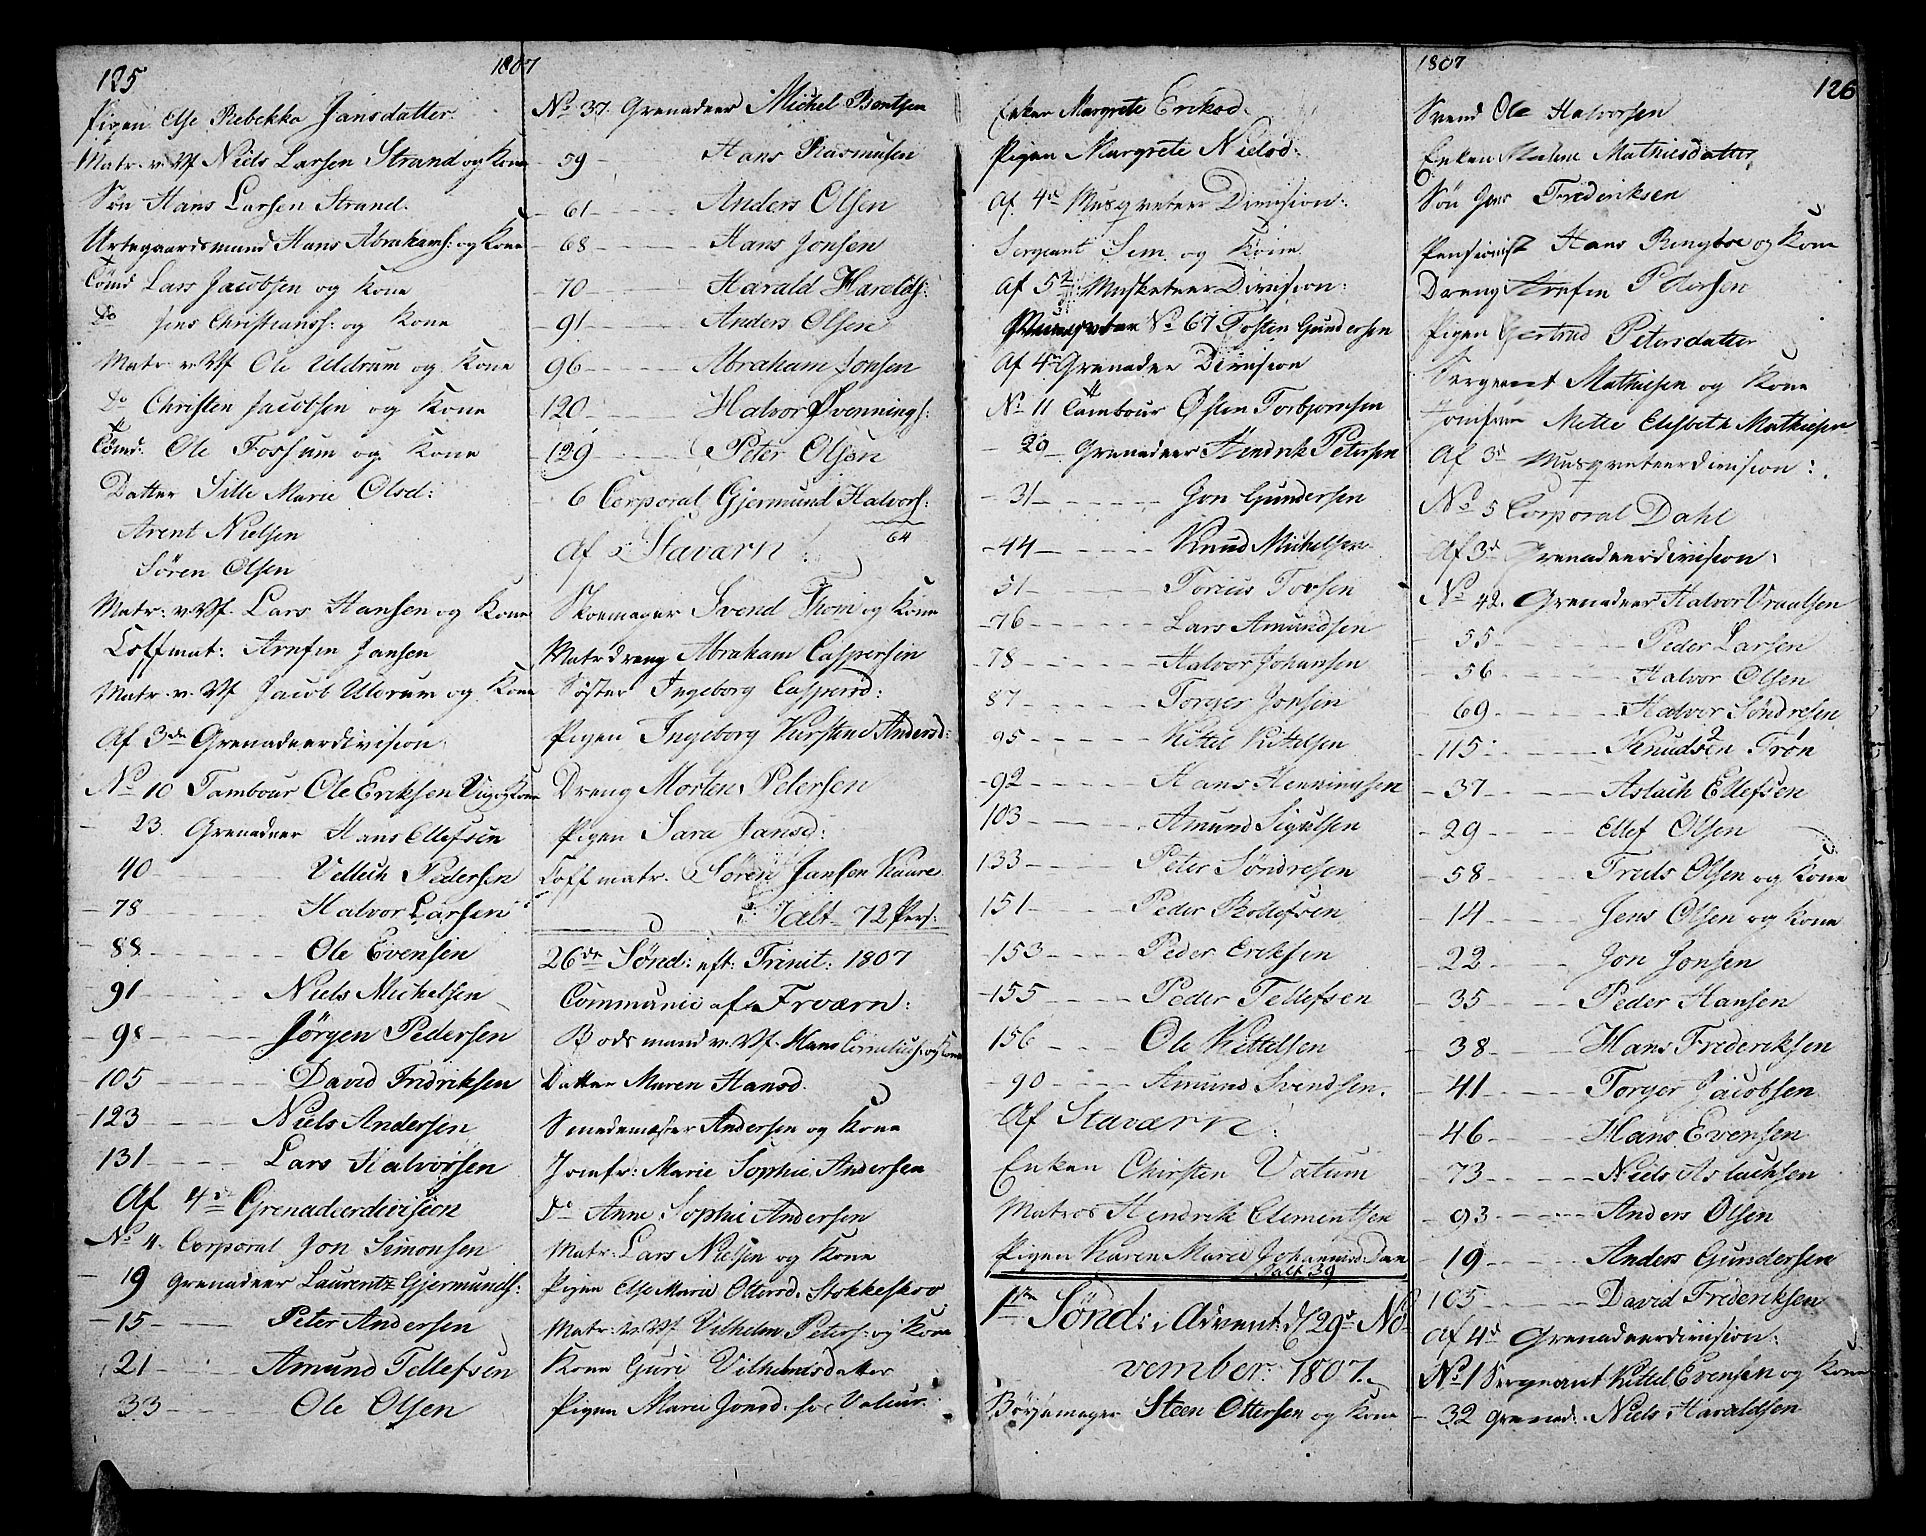 125
1807
Pigen Else Rebekka Jansdatter
Matr. v. Vf Niels Larsen Strand og Kone
Søn Hans Larsen Strand.
Urtegaardsmand Hans Abrahams: og Kone
Tømd Lars Jacobsen og Kone
Do Jens Christianss: og Kone
Matr v. Vf Ole Uldrum og Kone
Do Christen Jacobsen og Kone
Tømd: Ole Fossum og Kone
Datter Sille Marie Olsd:
Arent Nielsen
Søren Olsen
Matr: v. Vf. Lars Hansen og Kone
Toffmat: Arnfin Jansen
Matr. v. Vf Jacob Uldrum og Kone
Af 3de Grenadeerdivision
No 10 Tambour Ole Eriksen Vig og Kone
23. Grenadeer Hans Ellefsen
40 Pedersen
78 Halvor Larsen
88 Ole Evensen
91 Niels Michelsen
98 Jørgen Pedersen
105 David Fridriksen
123 Niels Andersen
131 Lars Halvorsen
Af 4de Grenadeerdivision
No 4. Corporal Jon Simonsen
19 Grenadeer Laurentz Gjermunds:
15 Peter Andersen
21 Amund Tellefsen
33 Ole Olsen
No 37 Grenadeer Michel Bentsen
59 Hans Rasmusen
61 Anders Olsen
68 Hans Jonsen
70 Harald Harolds:
91 Anders Olsen
96 Abraham Jonsen
120 Halvor Svennings:
129 Peter Olsen
6 Corporal Gjermund Halvors:
64
Af Staværn:
Skoemager Svend Thom og Kone
Matrdreng Abraham Caspersen
Søster Ingeborg Caspersd:
Pigen Ingeborg Kirstine Andersd:
Dreng Morten Pedersen
Pigen Sara Jansd:
Toffmatr. Søren Jansen Kaare
Ialt 72 Pers:
26de Sønd: eft: Trinit: 1807
Communic af Frværn:
Bodsmand v. Vf. Hans Cornelius: og Kone
Datter Maren Hansd.
Smedemester Andersen og Kone
Jomfr: Marie Sophie Andersen
Do Anne Sophie Andersen
Matr: Lars Nielsen og Kone
Pigen Else Marie Ottersd. Stokkeskov
Matr: v. Vf Vilhelm Peters: og Kone
Kone Guri Vilhelmsdatter
Pigen Marie Jonsd: hos Valeur.
Enken Margrete Eriksd.
Pigen Margrete Nielsd:
Af 4de Musqveteer Division:
Sergeant Sem og Kone
Af 5te Musketeer Division:
Musqveteer No 67 Tosten Gundersen
Af 4de Grenadeer Division
No 11 Tambour Østen Torbjørnsen
29 Grenadeer Hendrik Petersen
31 Jon Gundersen
44 Knud Michelsen
51 Torsen
76 Lars Amundsen
78 Halvor Johansen
87 Torger Jonsen
95 Kittel Kittelsen
92 Hans Henningsen
103 Amund Sigulsen
133 Peter Søndresen
151 Peder Rollefsen
153 Peder Eriksen
155 Peder Tellefsen
156 Ole Kittelsen
90 Amund Svendsen.
Af Staværn:
Enken Chirsten Vatum
Matros Hendrik Clementsen
Pigen Karen Marie Johannisd: Dan
Ialt 39
1ste Sønd: i Advent: d/ 29de No-
vember. 1807.
Børsemager Steen Ottersen og Kone
1807
126
Svend Ole Halvorsen
Enken Malene Mathiesdatter
Søn Jens Frederiksen
Pensionist Hans Ringboe og Kone
Dreng Arnfin Petersen
Pigen Gertrud Petersdatter
Sergeant Mathiesen og Kone
Jomfrue Mette Elisbeth Mathiesen
Af 3d Musqveteerdivision:
No 5 Corporal Dahl
Af 3d Grenadeerdivision:
No 42. Grenadeer Halvor Vraalsen
55 Peder Larsen
56 Halvor Olsen
69 Halvor Søndresen
115 Knudsen Trøn
37 Aslach Ellefsen
29 Ellef Olsen
58 Truls Olsen og Kone
14 Jens Olsen og Kone
22 Jon Jonsen
35 Peder Hansen
38 Hans Frederiksen
41 Torger Jacobsen
46 Hans Evensen
73 Niels Aslachsen
93 Anders Olsen
19 Anders Gundersen
105 David Frederiksen
Af 4d Grenadeerdivision:
No 1 Sergeant Kittel Evensen og Kone
32 Grenad: Niels Haraldsen